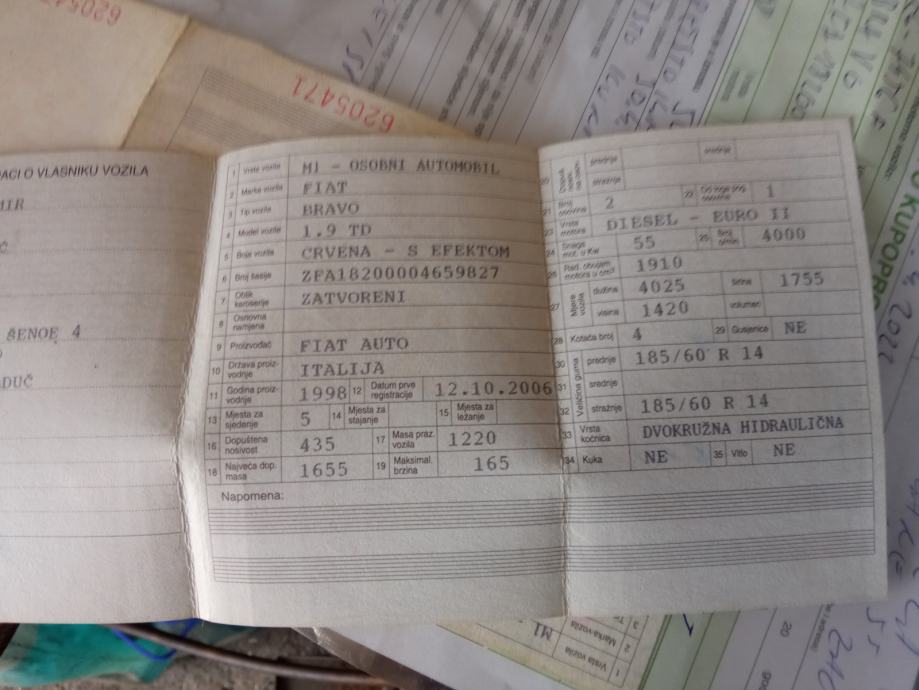 6205471
ACI O VLASNIKU VOZILA
MIR
ŠENOE 4
DUČ
1 Vrsta vozila M1 - OSOBNI AUTOMOBIL
2 Marka vozila FIAT
3 Tip vozila BRAVO
4 Model vozila 1.9 TD
5 Boja vozila CRVENA - S EFEKTOM
6 Broj šasije ZFA18200004659827
7 Oblik karoserije ZATVORENI
8 Osnovna namjena
9 Proizvođač FIAT AUTO
10 Država proizvodnje ITALIJA
11 Godina proizvodnje 1998 12 Datum prve registracije 12.10.2006
13 Mjesta za sjedenje 5 14 Mjesta za stajanje 15 Mjesta za ležanje
16 Dopuštena nosivost 435 17 Masa praz. vozila 1220
18 Najveća dop. masa 1655 19 Maksimal. brzina 165
Napomena:
20 prednje srednje
stražnje
21 Broj osovina 2 22 1
23 Vrsta motora DIESEL - EURO II
24 Snaga mot. u Kw 55 25 4000
26 Rad. obujam motora u cm3 1910
27 Mjere vozila dužina 4025 širina 1755
visina 1420 volumen
28 Kotača broj 4 29 Gusjenice NE
30 Veličina guma prednje 185/60 R 14
31 srednje
32 stražnje 185/60 R 14
33 Vrsta kočnica DVOKRUŽNA HIDRAULIČNA
34 Kuka NE 35 Vitlo NE
KUPOPRO
M1
Marka vozila
Vrsta vozila
20